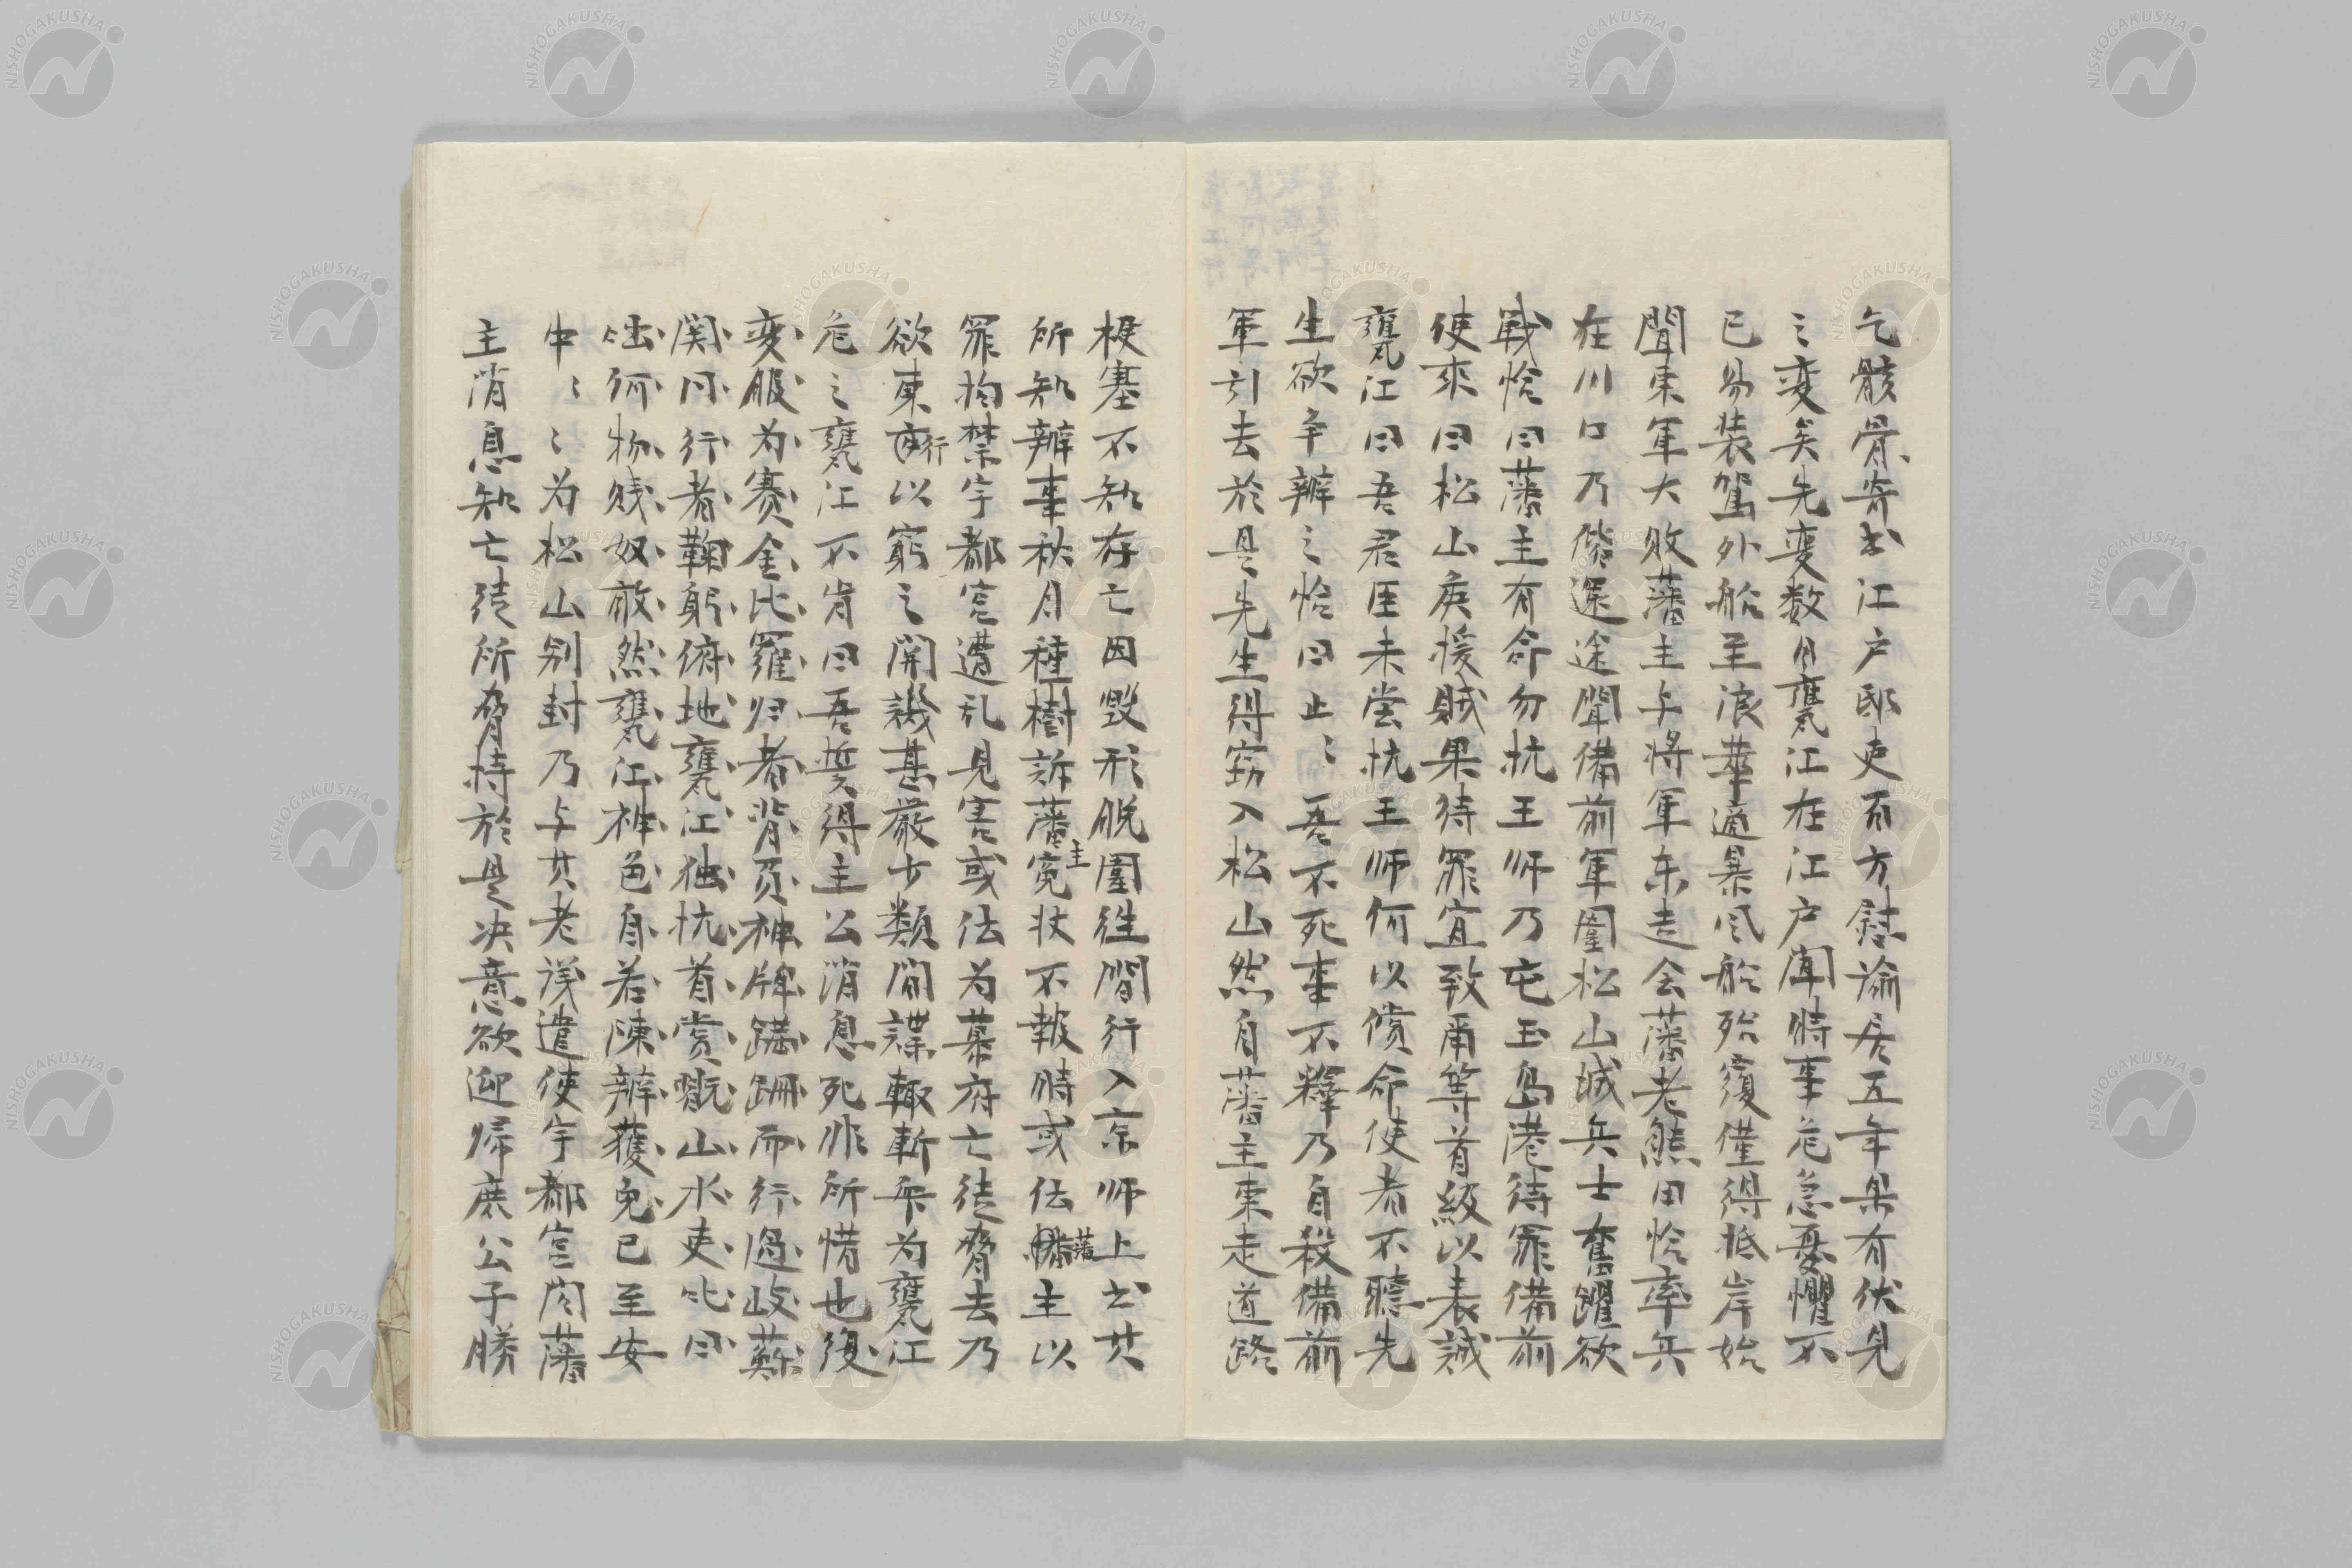 乞骸骨寄书江户邸吏百方慰諭居五年果有伏見
之変矣先変数月甕江在江户聞時事危急憂懼不
已易装駕外船至浪華適暴风船殆覆僅得抵岸始
聞東軍大敗藩主与将軍东走会藩老熊田恰率兵
在川口乃偕還途聞備前軍圍松山城兵士奮躍欲
戦恰曰藩主有命勿抗王师乃屯玉島港待罪備前
使来曰松山侯援賊果待罪宜致甬等首級以表誠
甕江曰吾君臣未尝抗王师何以償命使者不聽先
生欲争辨之恰曰止〻吾不死事不釋乃自殺備前
軍引去於是先生得窃入松山然自藩主東走道路
梗塞不知存亡因毁形脱圍徃間行入京师上书其
所知辨事秋月種樹訴藩主寃状不報時或伝藩主以
罪拘禁宇都宫遭乱見害或伝为幕府亡徒脅去乃
欲東行以窮之関譏甚嚴少類间諜輙斬乎为甕江
危之甕江不肯曰吾誓得主公消息死非所惜也復
変服为賽金比羅归者背負神牌蹣跚而行過岐蘇
関门行者鞠躬俯地甕江独抗首赏翫山水吏叱曰
咄何物賎奴敢然甕江神色自若陳辨獲免已至安
中〻〻为松山别封乃与其老謀遣使宇都宫问藩
主消息知亡徒所脅持於是决意欲迎歸庶公子勝
NISHOGAKUSHA